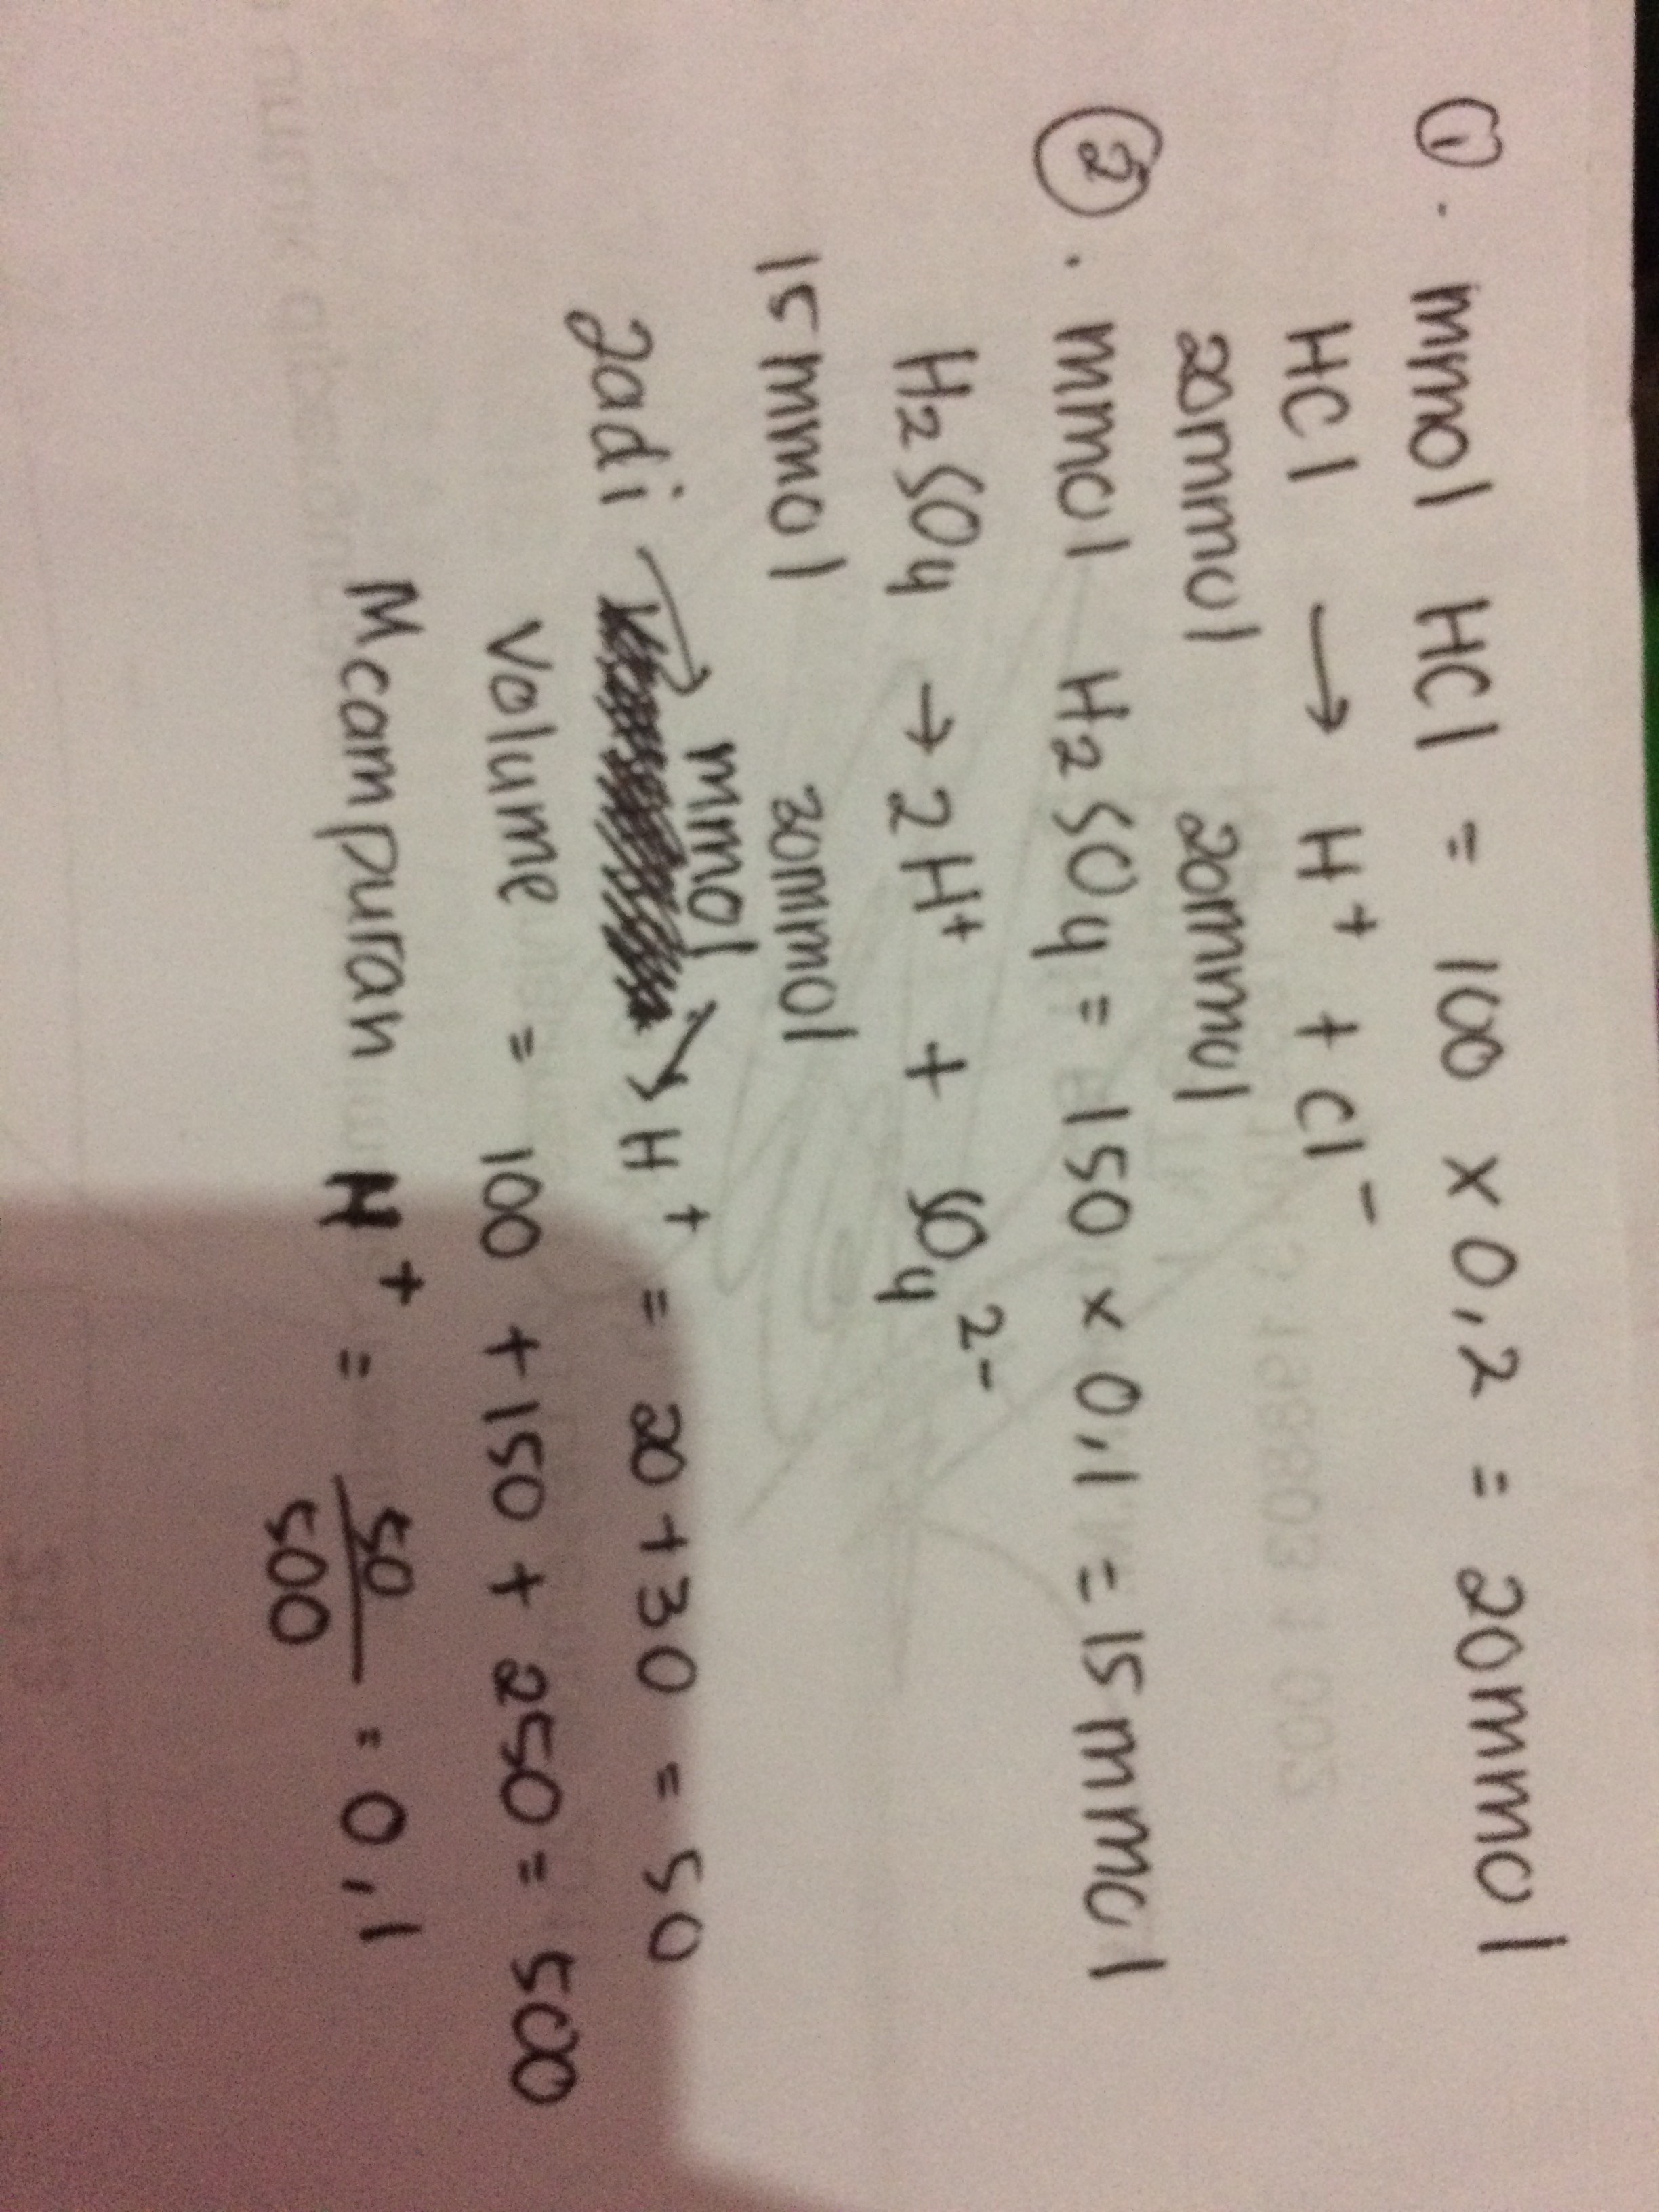 ① . mmol HCl = 100 x 0,2 = 20mmol
HCl → H⁺ + Cl⁻
20mmol 20mmol
② . mmol H₂SO₄ = 150 x 0,1 = 15 mmol
H₂SO₄ → 2H⁺ + SO₄²⁻
15 mmol 30mmol
Jadi → mmol → H⁺ = 20 + 30 = 50
Volume = 100 + 150 + 250 = 500
Mcampuran H⁺ = 50/500 = 0,1